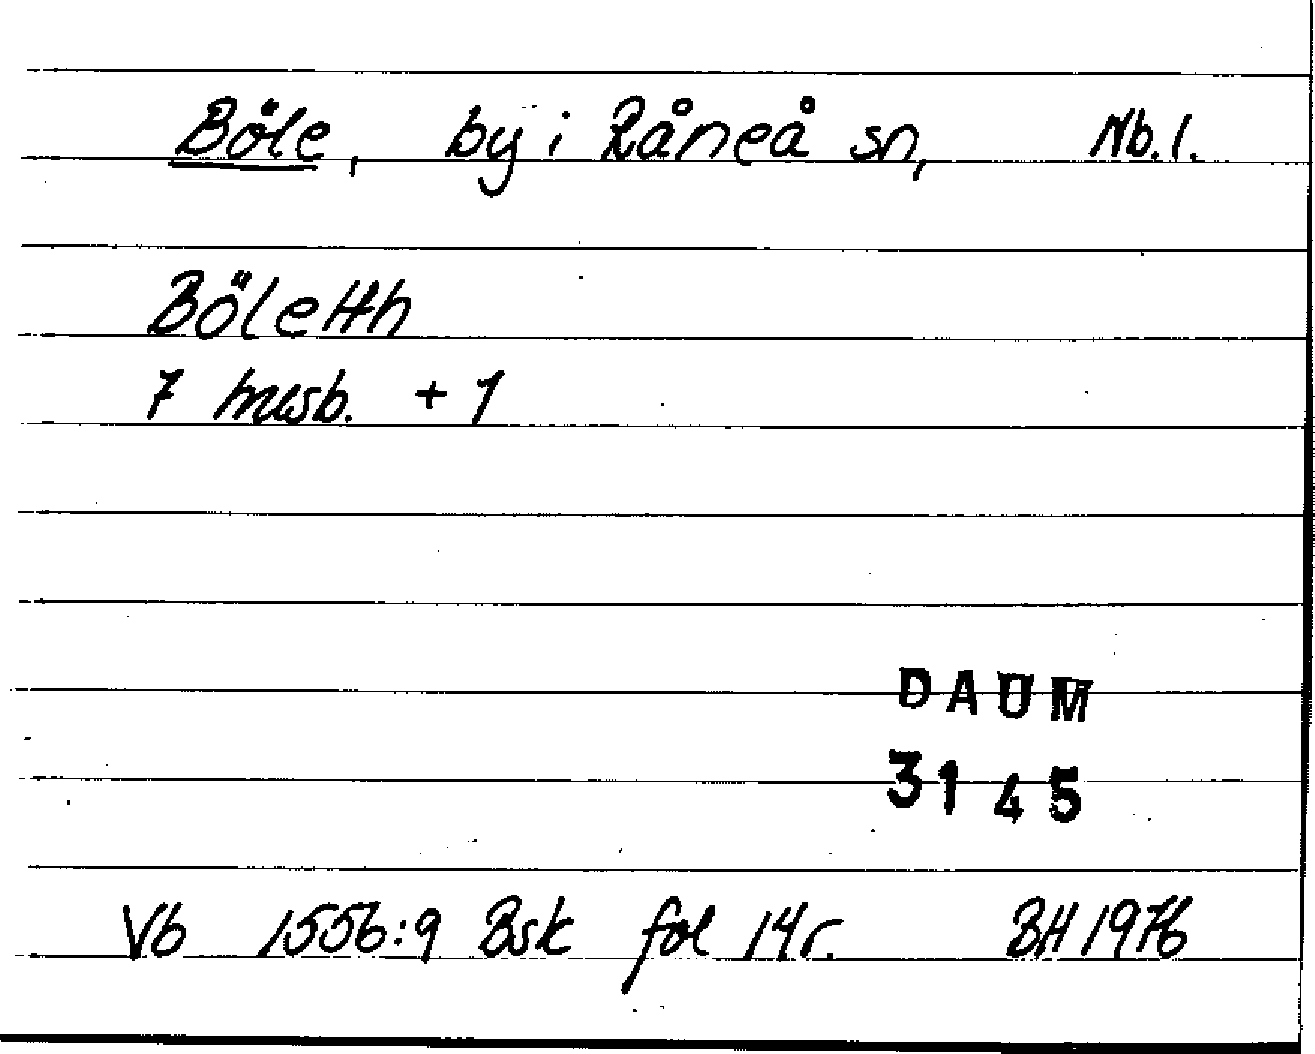 Böle, by i Råneå sn, Nb.l.
Böletth
7 husb. + 1
DAUM
3145
Vb 1556:9 Bsk fol 14r. BH 1976